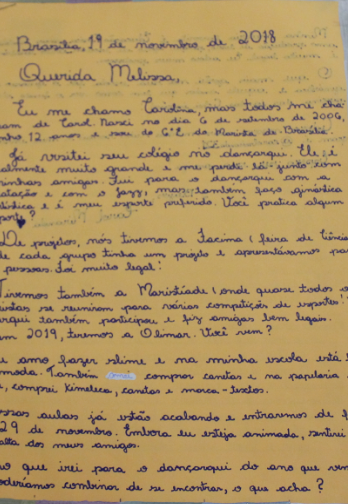 Brasília, 19 de novembro de 2018
Querida Melissa,
Eu me chamo Carolina, mas todos me cha
am de Carol. Nasci no dia 6 de setembro de 2006,
nho 12 anos e sou do 6°E do Marista de Brasília.
Já visitei seu colégio no dançarqui. Ele é
almente muito grande e me perdi lá junto com
inhas amigas. Fui para o dançarqui com a
atação e com o jazz, mas também faço ginástica
ística e é meu esporte preferido. Você pratica algum
porte?
De projetos, nós tivemos a Facima (feira de ciênc
de cada grupo tinha um projeto e apresentávamos pa
pessoas. Foi muito legal!
Tivemos também a Maristíade (onde quase todos o
istas se reuniram para várias competições de esportes!
arqui também participou e fiz amigas bem legais.
em 2019, teremos a Olimar. Você vem?
u amo fazer slime e na minha escola está
moda. Também comprar canetas e na papelaria
, comprei Kimeleca, canetas e marca-textos.
ssas aulas já estão acabando e entraremos de f
29 de novembro. Embora eu esteja animada, sentirei
alta dos meus amigos.
ho que irei para o dançarqui do ano que vem
oderíamos combinar de se encontrar, o que acha?